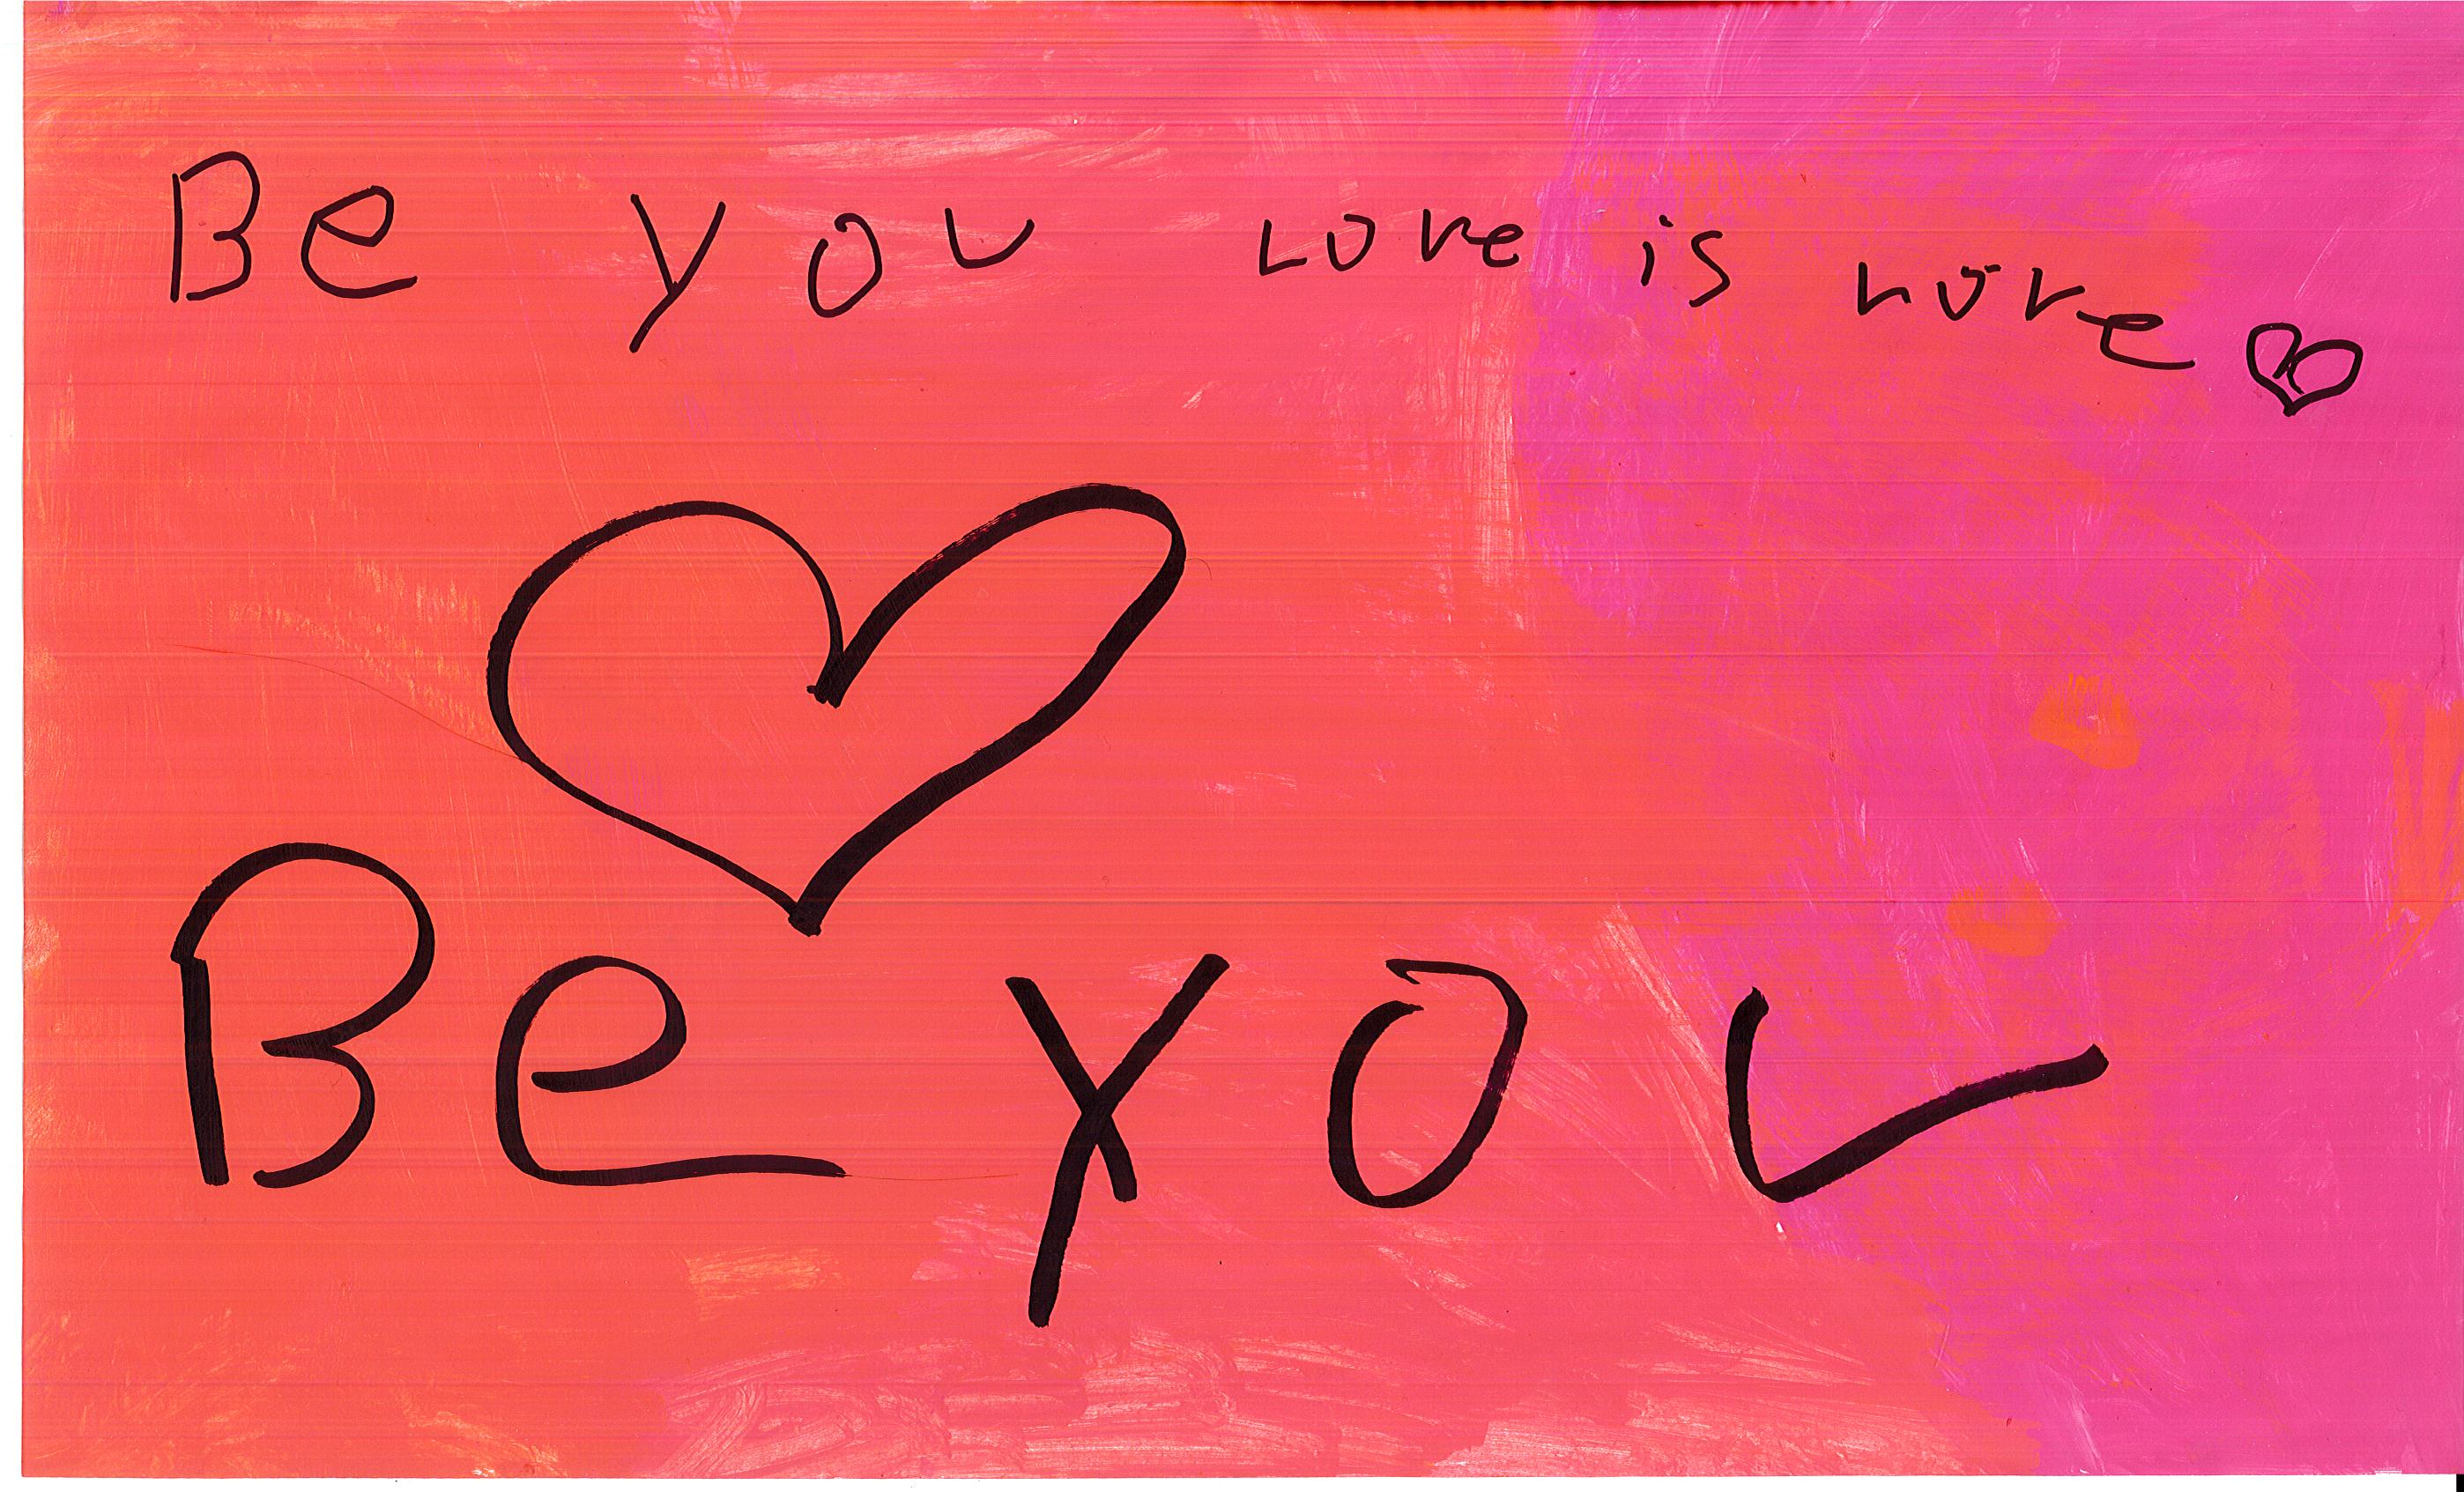 Be you Love is Love
Be you